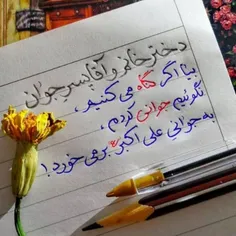 دختر خانم و آقا پسر جوان
بیا اگر گناه می کنیم ،
نگوئیم جوانی کردم ،
به جوانیِ علی اکبر برمی خورد !